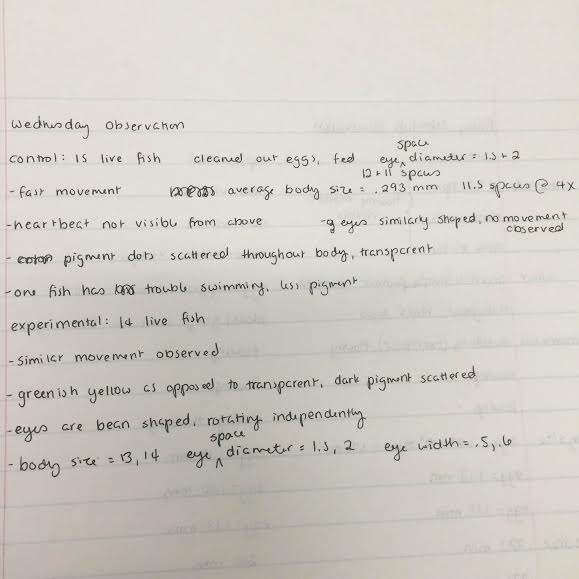 Wednesday Observation
space
control: 15 live fish cleaned out eggs, fed eye ^ diameter = 1.5 + 2
12 + 11 spaces
- fast movement average body size = .293 mm 11.5 spaces @ 4x
- heartbeat not visible from above - eyes similarly shaped, no movement
observed
- pigment dots scattered throughout body, transparent
- one fish has trouble swimming, less pigment
experimental: 14 live fish
- similar movement observed
- greenish yellow as opposed to transparent, dark pigment scattered
- eyes are bean shaped, rotating independently
space
- body size = 13, 14 eye ^ diameter = 1.5, 2 eye width = .5, .6